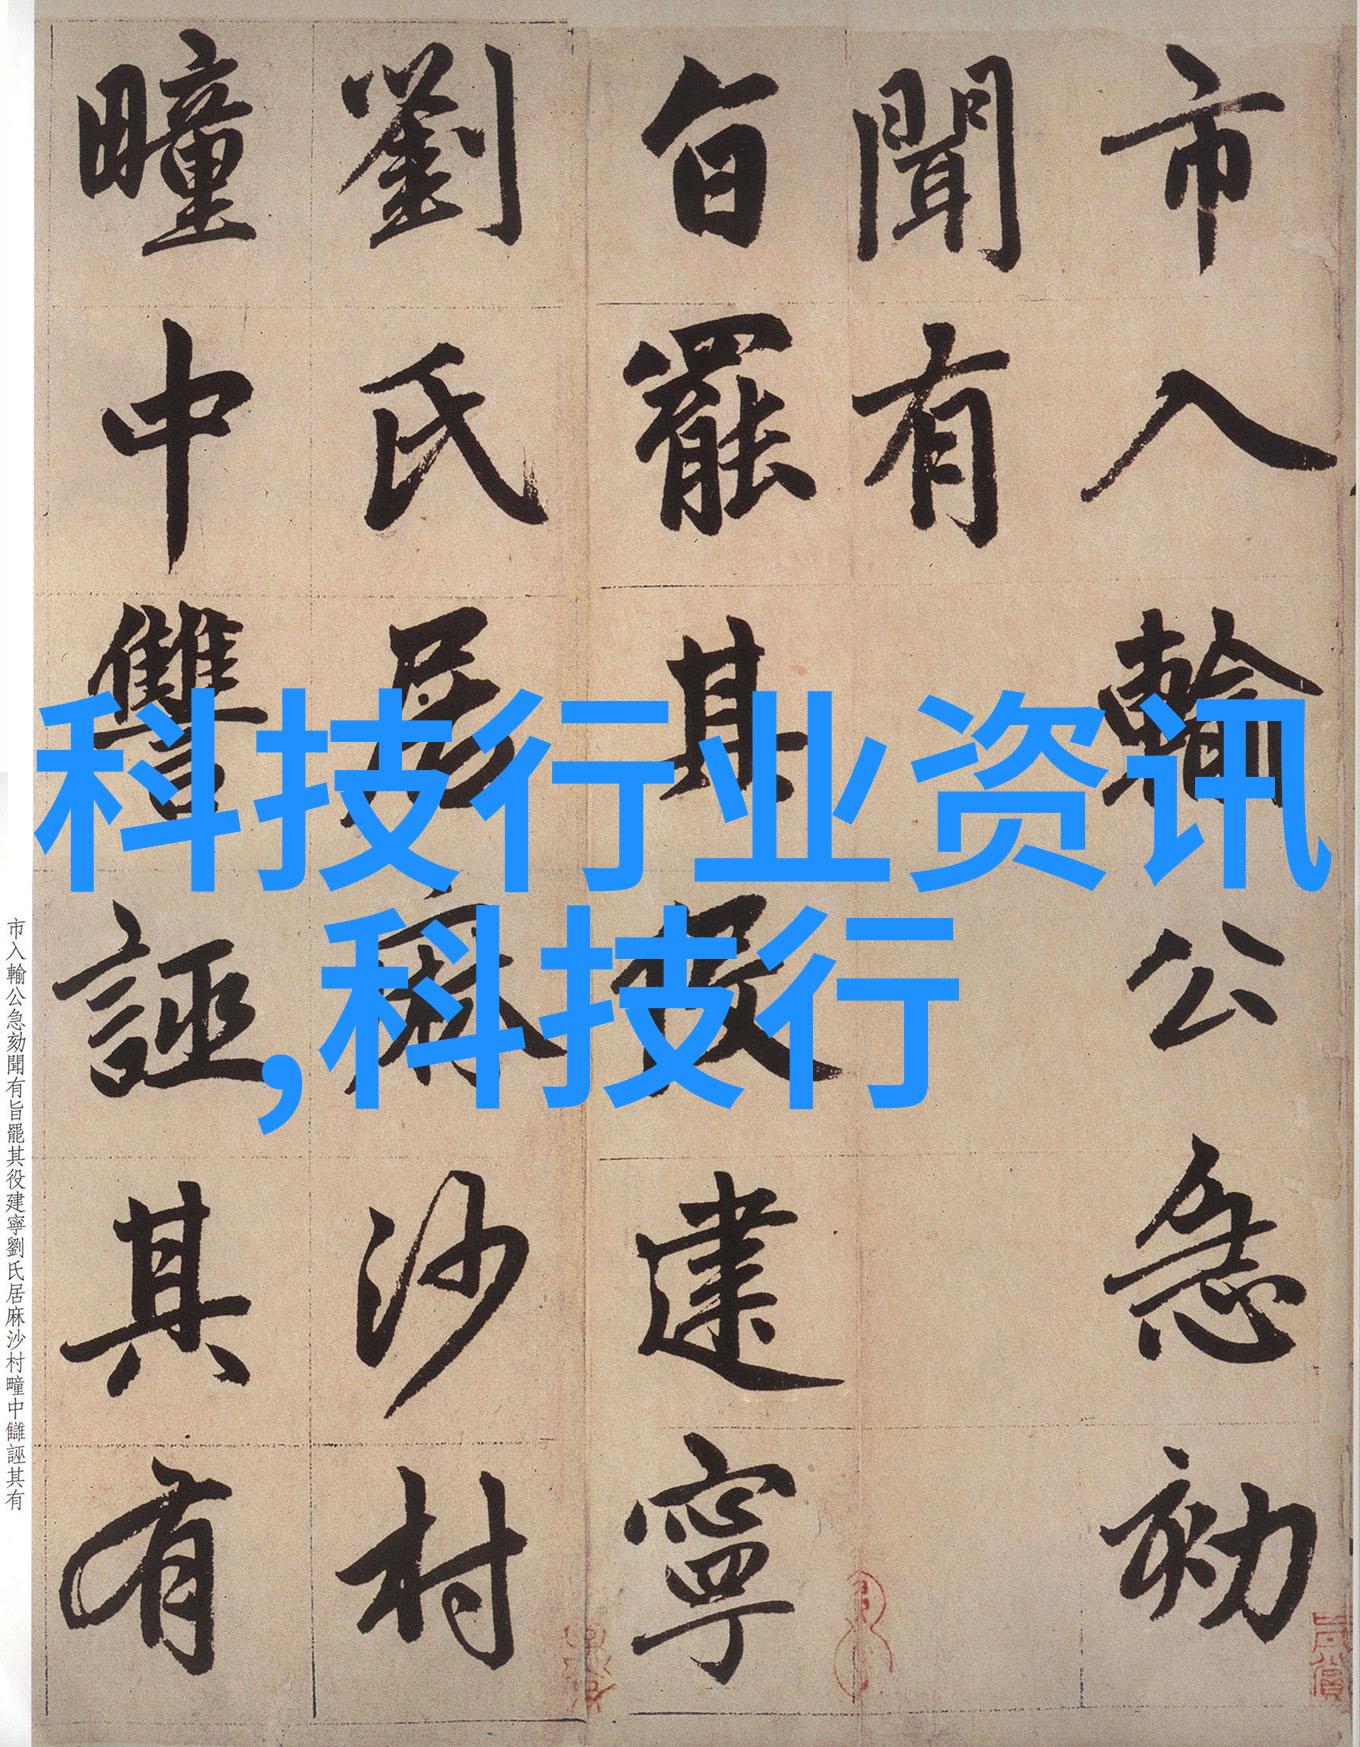 市入輸公急劾
聞有
旨罷其役建寧
劉氏居麻沙村
疃中讐誣其有
科技行业资讯
,科技行
市入輸公急劾聞有旨罷其役建寧劉氏居麻沙村疃中讎誣其有